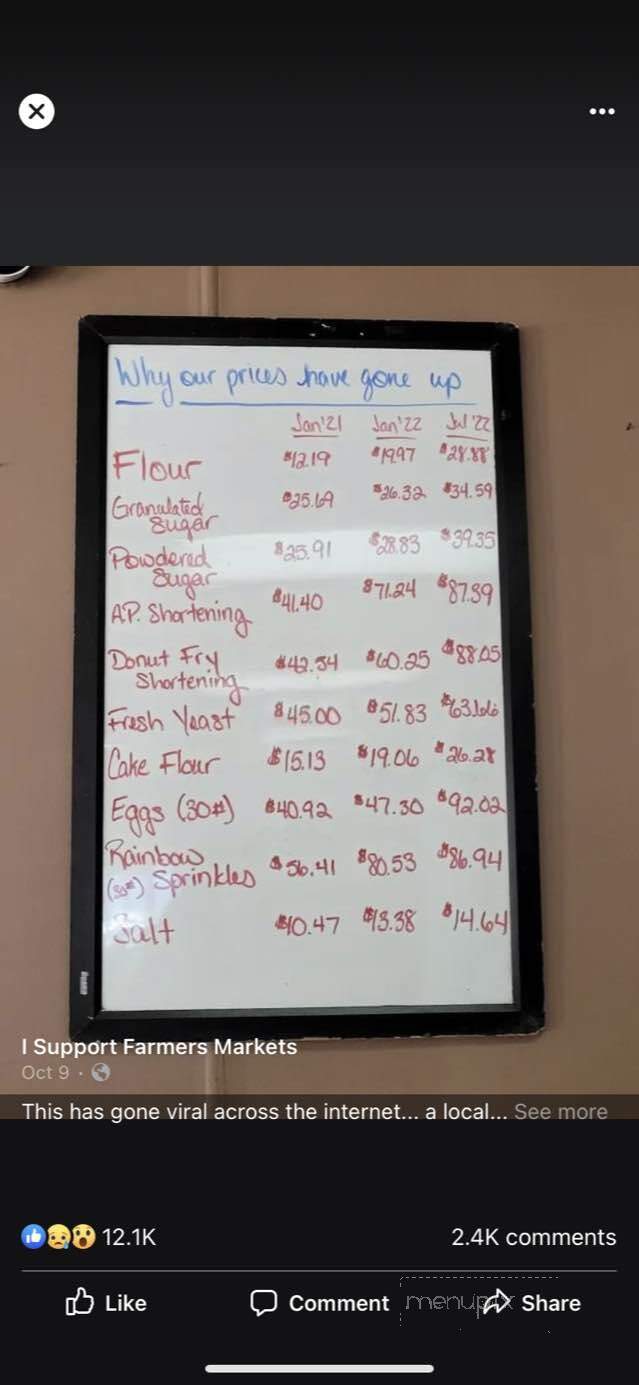 Why our prices have gone up
Jan'21 Jan'22 Jul'22
Flour $12.19 $19.97 $28.88
Granulated $25.69 $26.32 $34.59
Sugar
Powdered $25.91 $28.83 $39.35
Sugar
A.P. Shortening $41.40 $71.24 $87.39
Donut Fry $42.54 $60.25 $88.05
Shortening
Fresh Yeast $45.00 $51.83 $63.66
Cake Flour $15.13 $19.06 $26.28
Eggs (30#) $40.92 $47.30 $92.02
Rainbow $56.41 $80.53 $86.94
Sprinkles
Salt $10.47 $13.38 $14.64
I Support Farmers Markets
Oct 9 ·
This has gone viral across the internet... a local... See more
12.1K 2.4K comments
Like Comment Share